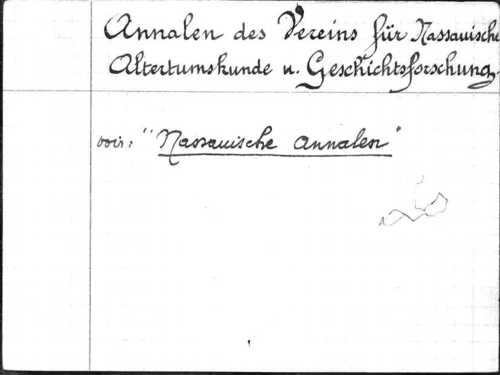 Annalen des Vereins für Nassauische
Altertumskunde u. Geschichtsforschung.
voir: "Nassauische Annalen"